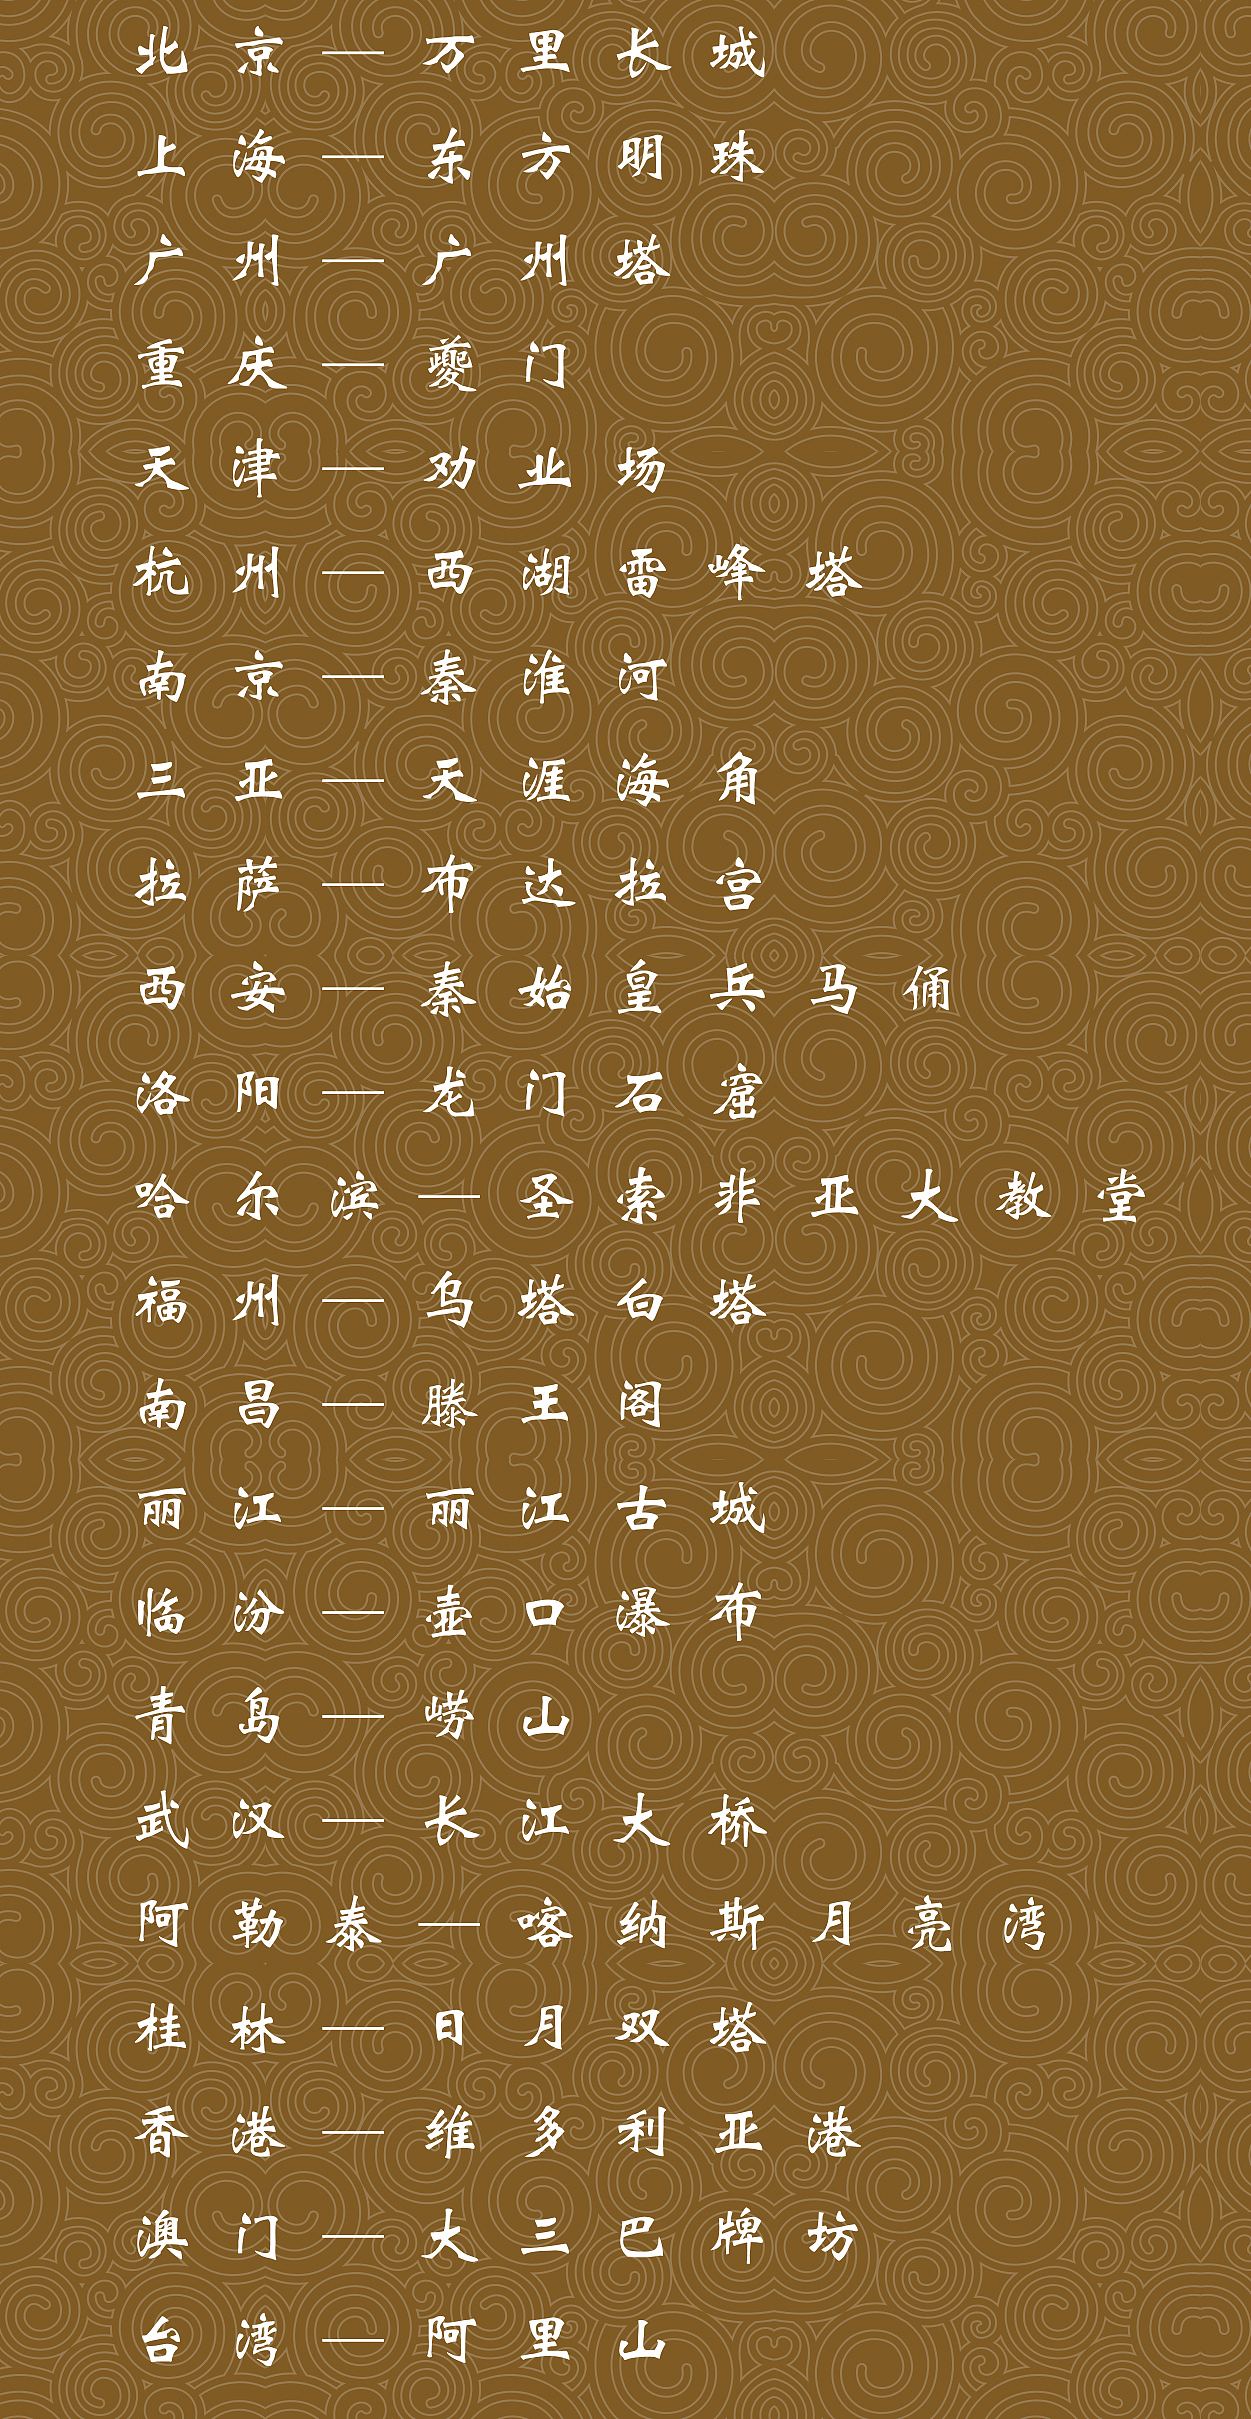 北京—万里长城
上海—东方明珠
广州—广州塔
重庆—夔门
天津—劝业场
杭州—西湖雷峰塔
南京—秦淮河
三亚—天涯海角
拉萨—布达拉宫
西安—秦始皇兵马俑
洛阳—龙门石窟
哈尔滨—圣索非亚大教堂
福州—乌塔白塔
南昌—滕王阁
丽江—丽江古城
临汾—壶口瀑布
青岛—崂山
武汉—长江大桥
阿勒泰—喀纳斯月亮湾
桂林—日月双塔
香港—维多利亚港
澳门—大三巴牌坊
台湾—阿里山